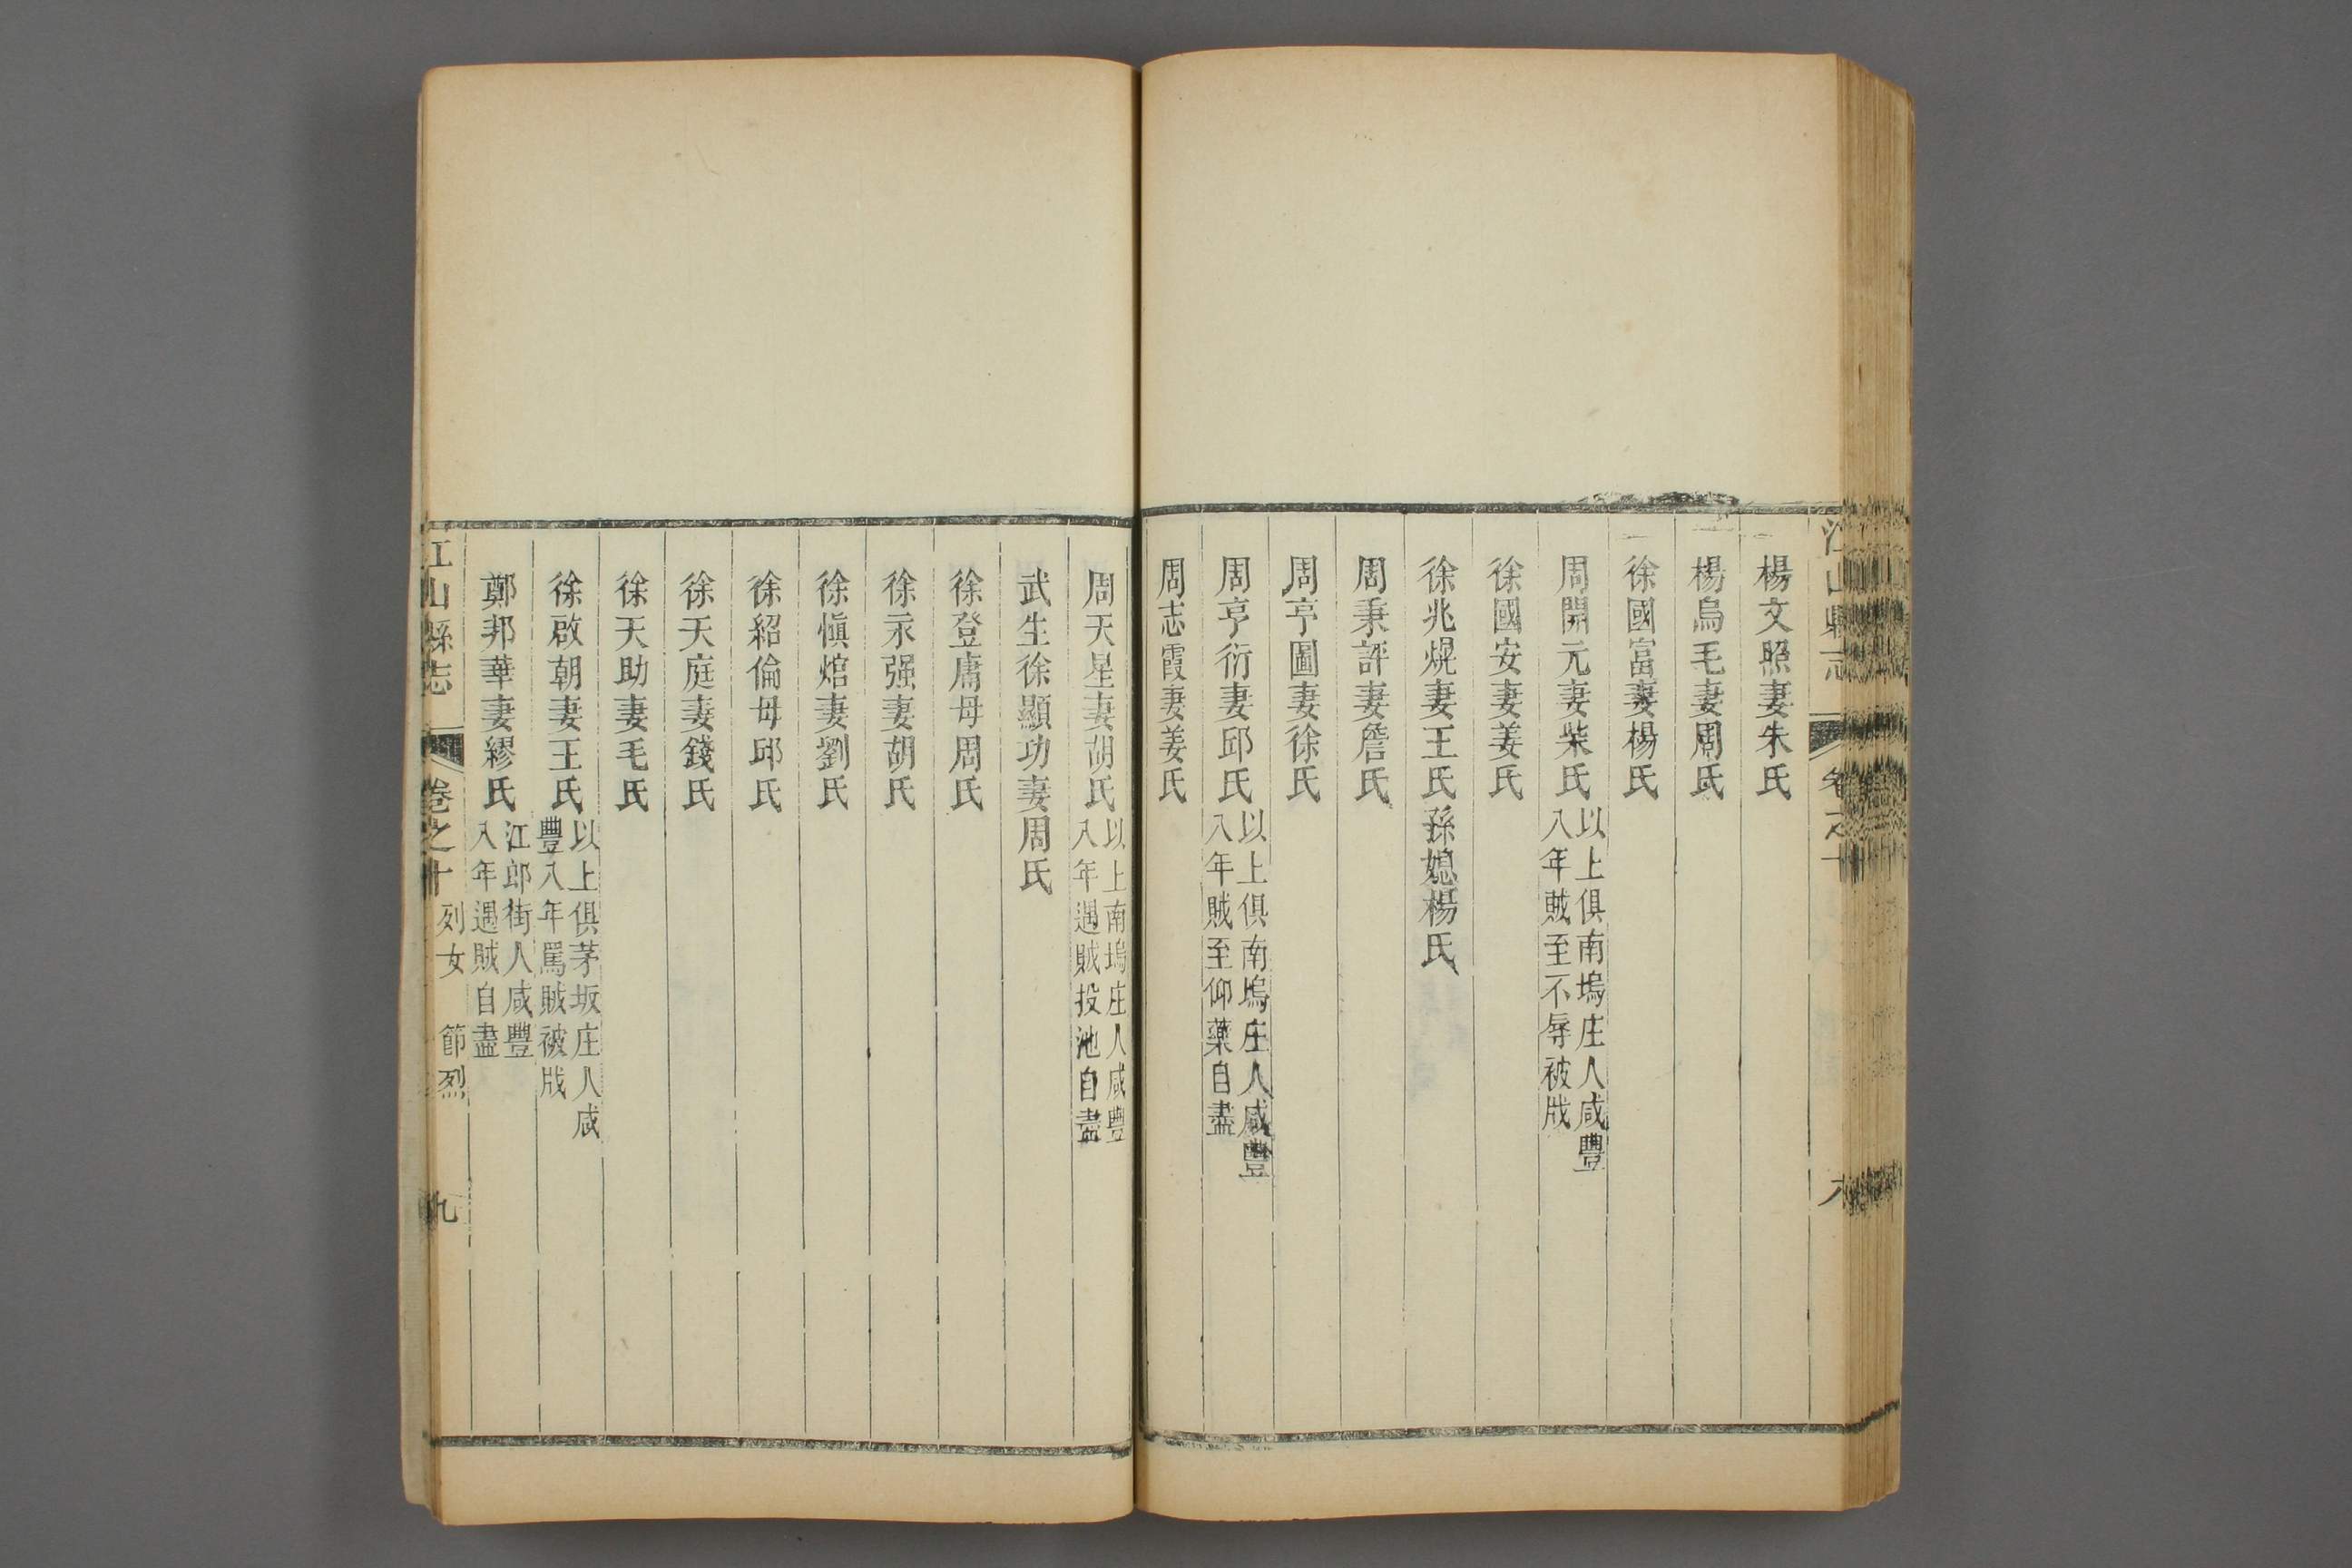 楊文照妻朱氏
楊烏毛妻周氏
徐國富妻楊氏
周開元妻柴氏
以上俱南塢庄人咸豐
八年賊至不辱被戕
徐國安妻姜氏
徐兆焜妻王氏孫媳楊氏
周秉評妻詹氏
周亨圖妻徐氏
周亨衍妻邱氏
以上俱南塢庄人咸豐
八年賊至仰藥自盡
周志霞妻姜氏
周天星妻胡氏
以上南塢庄人咸豐
八年遇賊投池自盡
武生徐顯功妻周氏
徐登庸母周氏
徐永强妻胡氏
徐愼焙妻劉氏
徐紹倫母邱氏
徐天庭妻錢氏
徐天助妻毛氏
徐啟朝妻王氏
以上俱茅坂庄人咸
豐八年罵賊被戕
鄭邦華妻繆氏
江郎街人咸豐
八年遇賊自盡
江山縣志 卷之十 列女 節烈 九